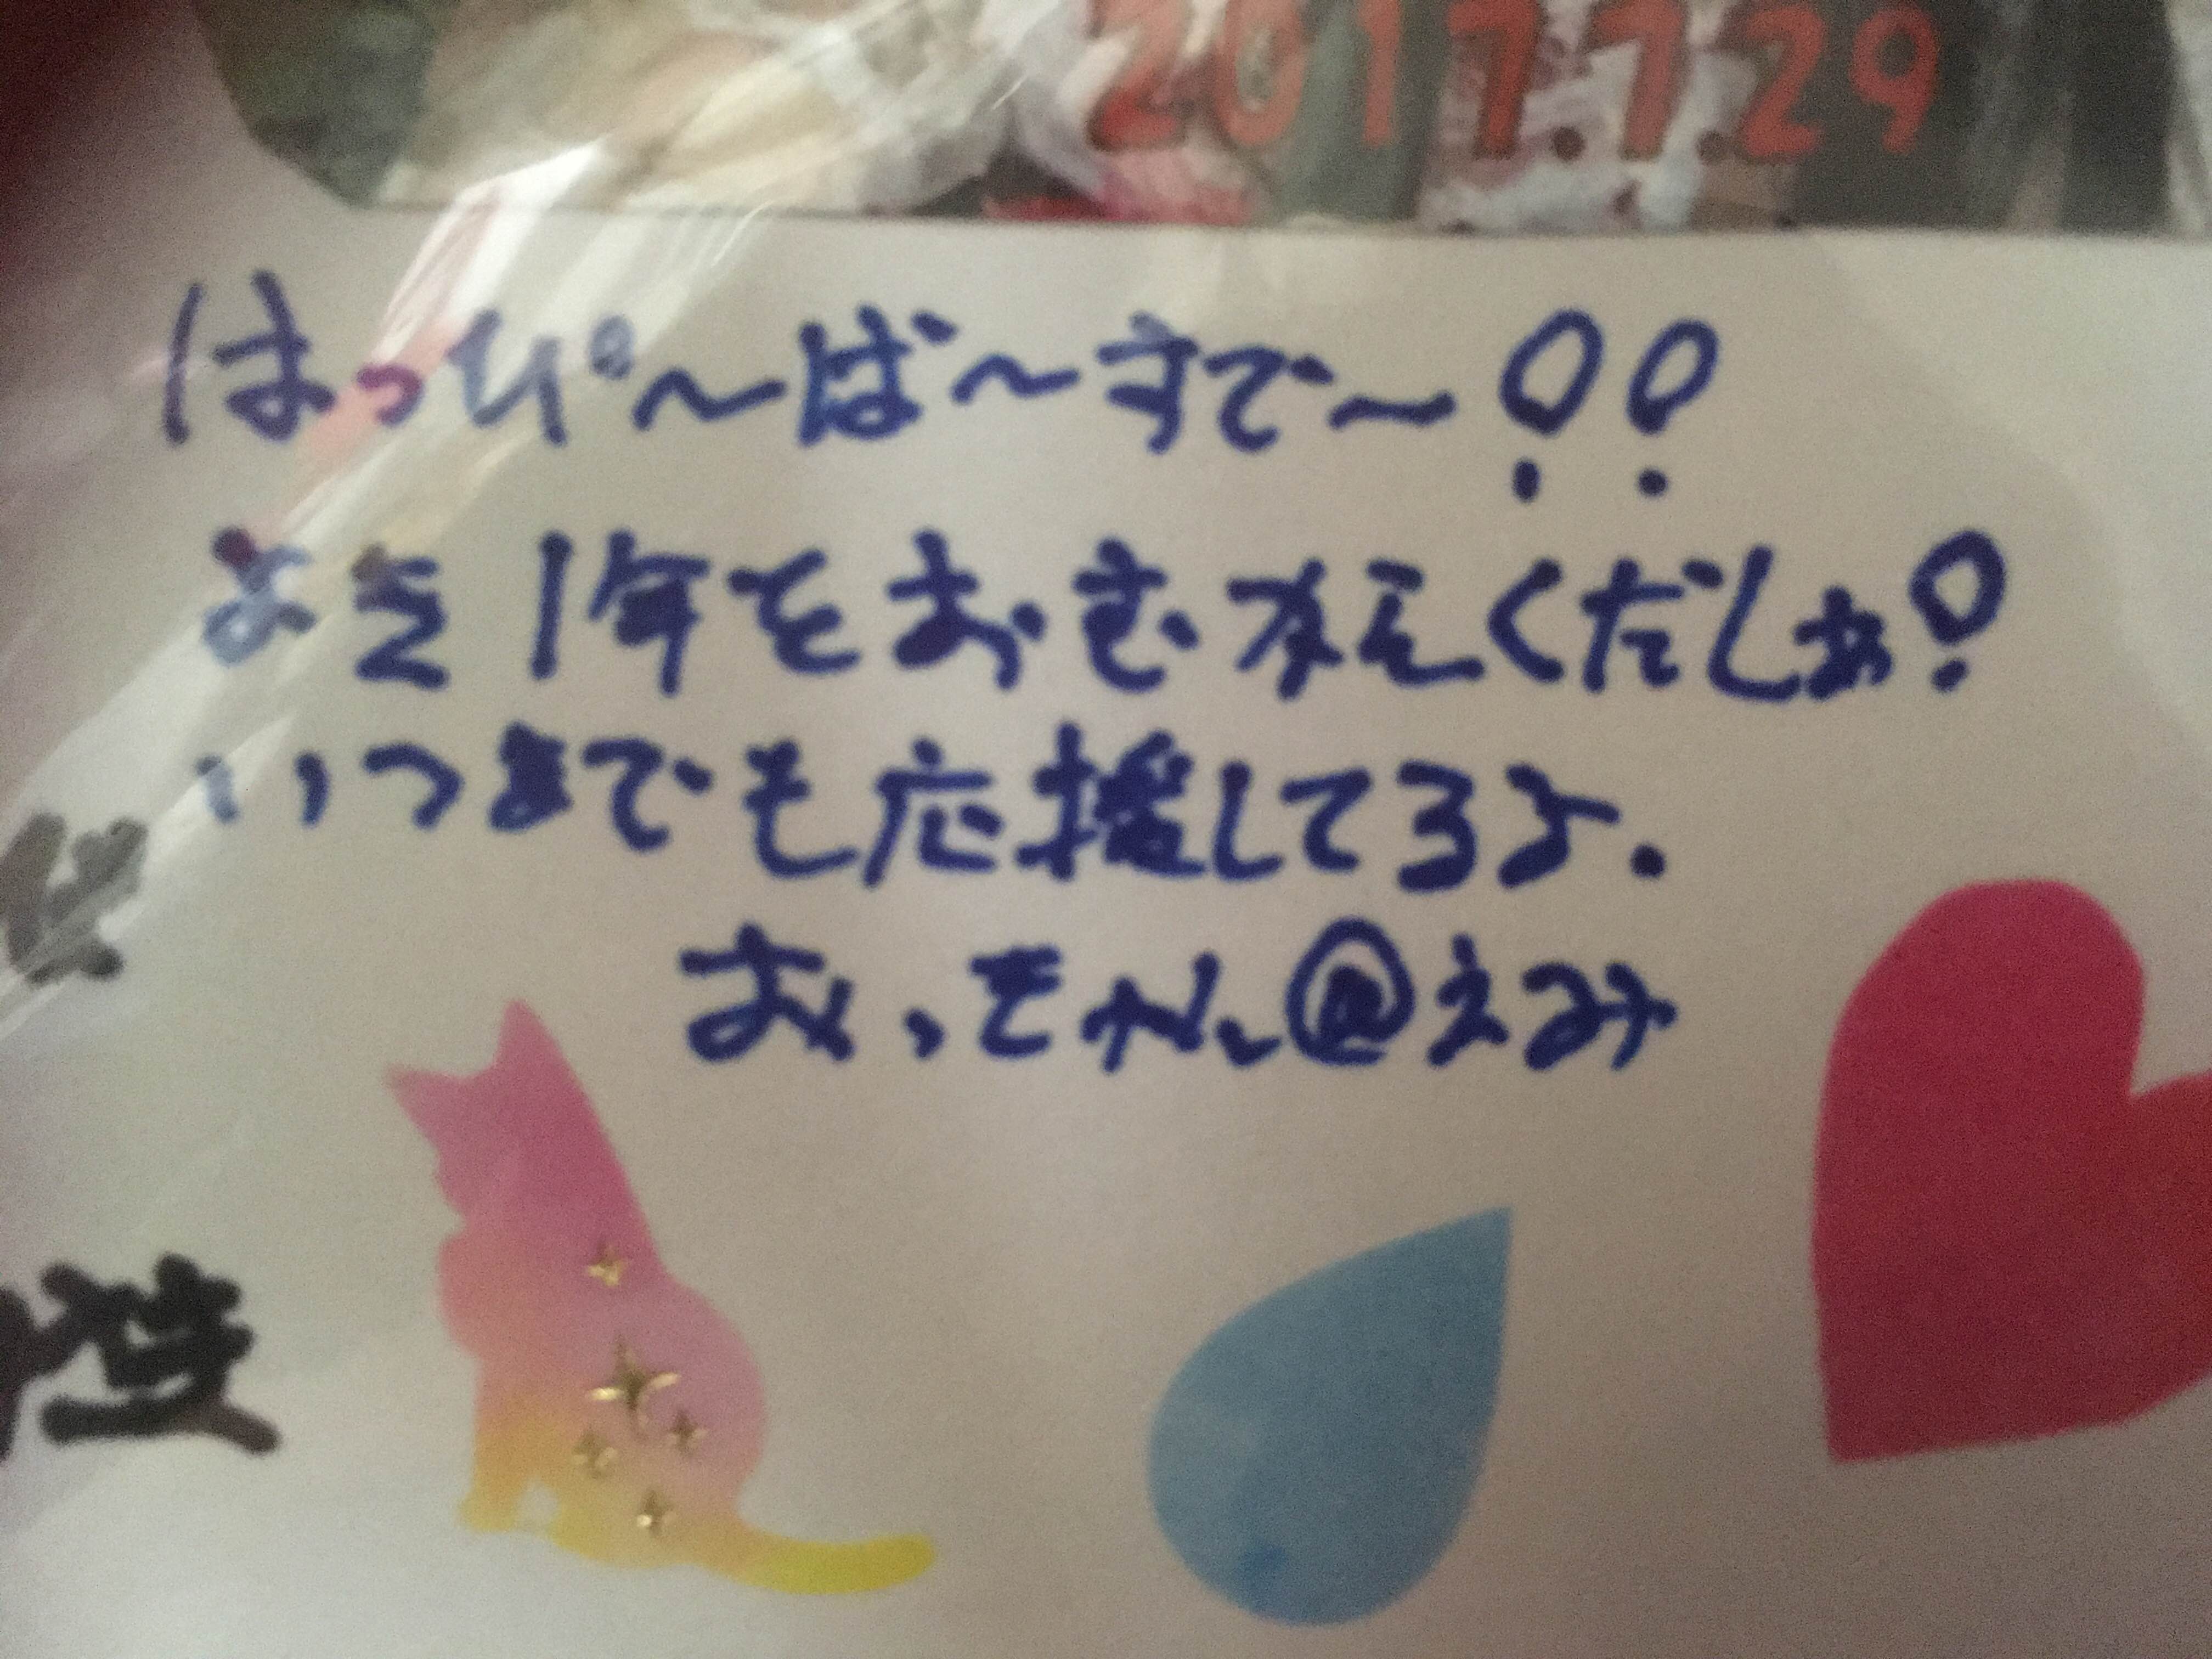 2017.7.29
はっぴ〜ば〜すで〜!!
よき1年をおむかえくだしあ!
いつまでも応援してるよ.
@えみ